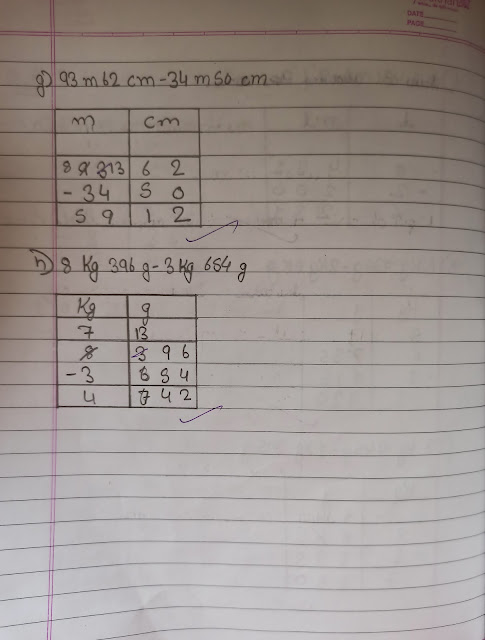 DATE
PAGE
g) 93 m 62 cm - 34 m 50 cm
m cm
8 9 3 13 6 2
- 34 5 0
5 9 1 2
h) 8 Kg 396 g - 3 Kg 654 g
Kg g
7 13
8 3 9 6
- 3 6 5 4
4 7 4 2